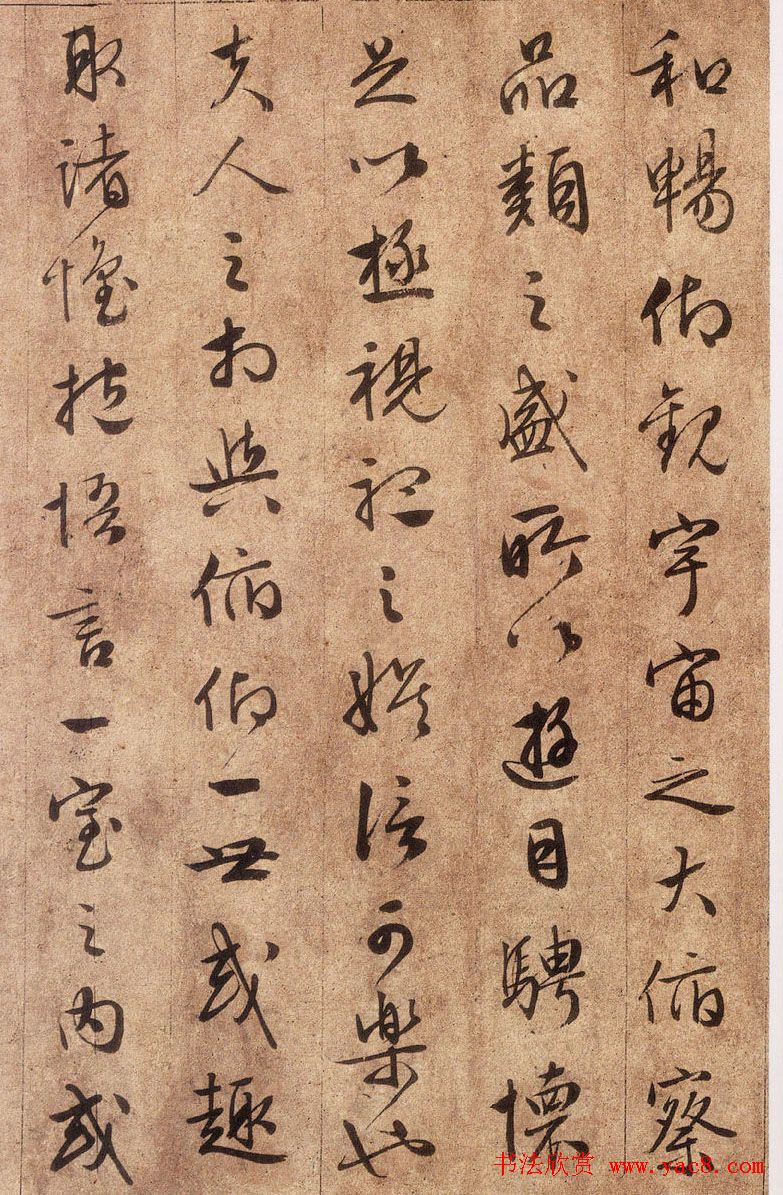 和暢仰觀宇宙之大俯察
品類之盛所以遊目騁懷
足以極視聽之娛信可樂也
夫人之相與俯仰一世或趣
取諸懷抱悟言一室之內或
书法欣赏 www.yac8.com